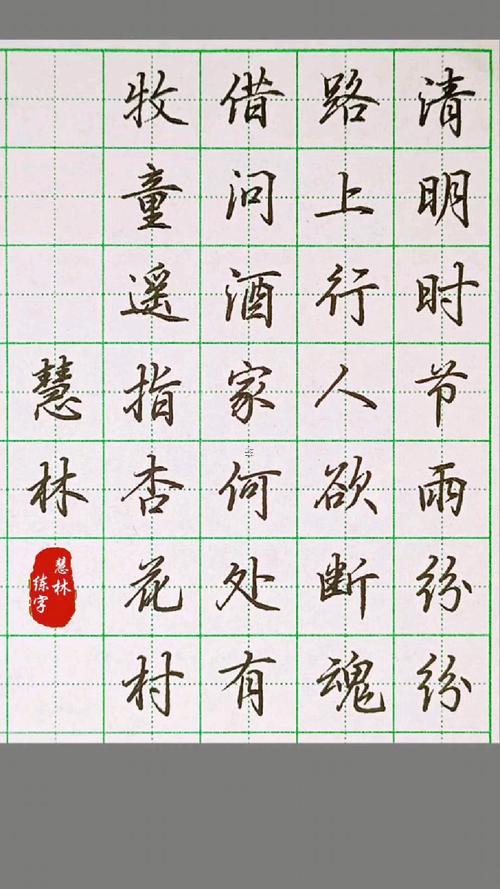 清明时节雨纷纷
路上行人欲断魂
借问酒家何处有
牧童遥指杏花村
慧林
慧林
练字